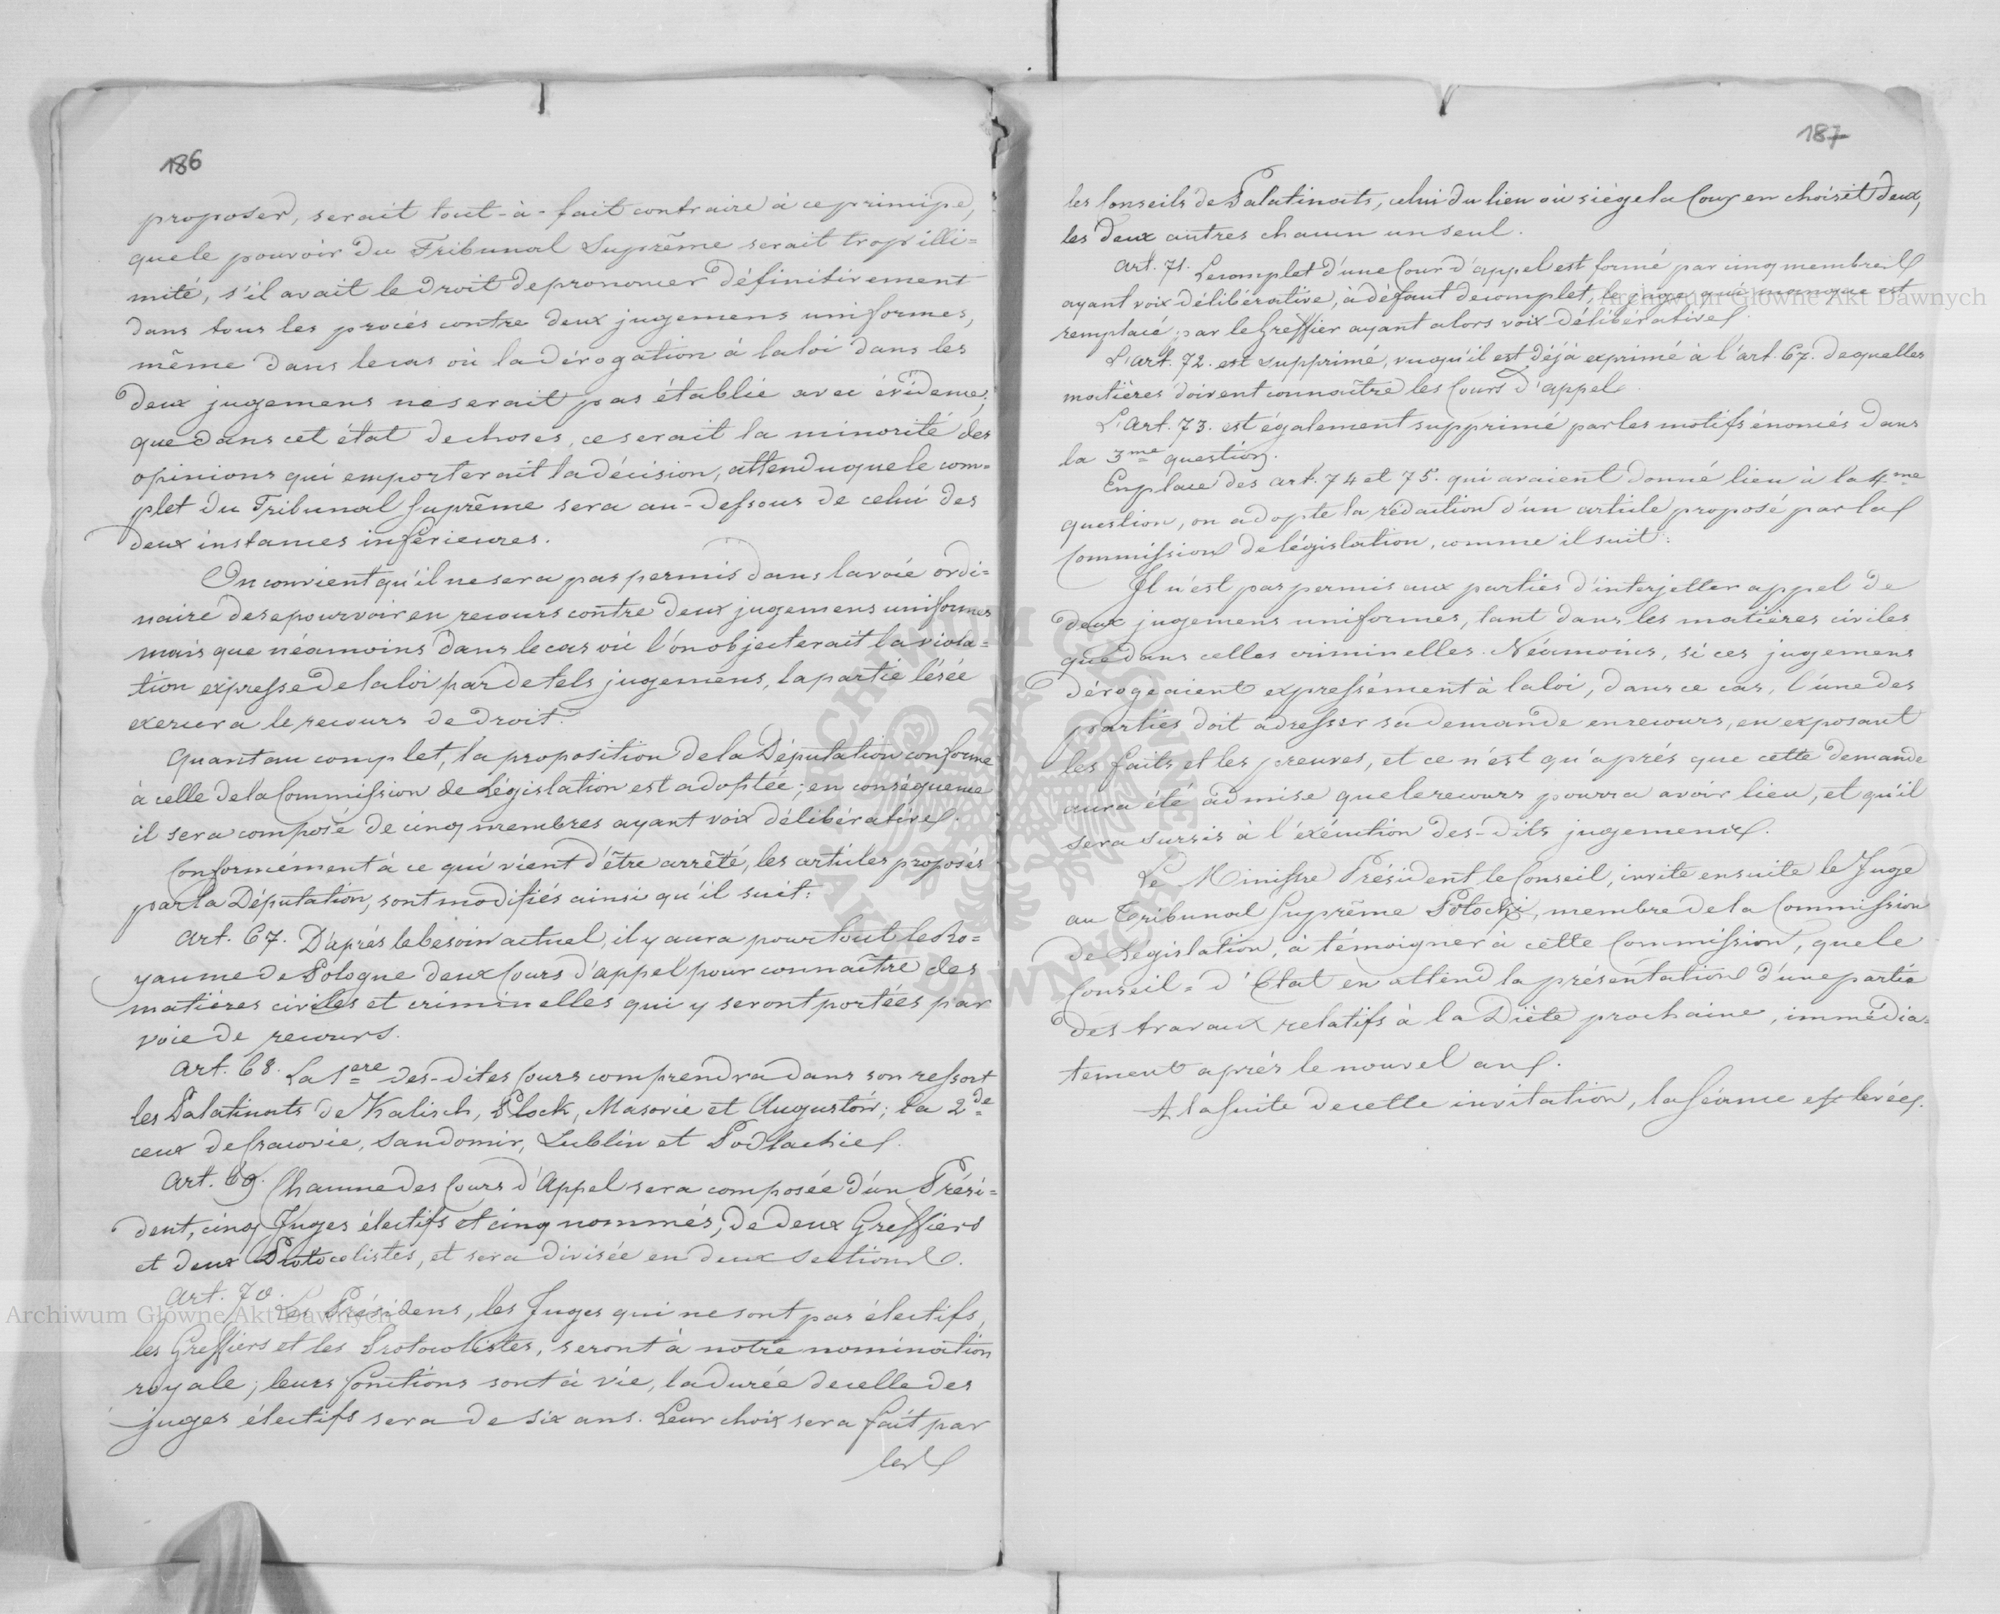 186
proposer, serait tout-à-fait contraire à ce principe,
que le pouvoir du Tribunal Suprême serait trop illi=
mité, s'il avait le droit de prononcer définitivement
dans tous les procès contre deux jugemens uniformes,
même dans le cas où la dérogation à la loi dans les
deux jugemens ne serait pas établie avec évidence;
que dans cet état de choses, ce serait la minorité des
opinions qui emporterait la décision, attendu que le com=
plet du Tribunal Suprême sera au-dessous de celui des
deux instances inférieures.
On convient qu'il ne sera pas permis dans la voie ordi=
naire de se pourvoir en recours contre deux jugemens uniformes
mais que néamoins dans le cas où l'on objecterait la viola=
tion expresse de la loi par de tels jugemens, la partie lésée
exercera le recours de droit.
Quant au complet, la proposition de la Députation conforme
à celle de la Commission de Législation est adoptée; en conséquence
il sera composé de cinq membres ayant voix délibérative.
Conformément à ce qui vient d'être arrêté, les articles proposés
par la Députation, sont modifiés ainsi qu'il suit:
Art. 67. D'après le besoin actuel, il y aura pour tout le Ro=
yaume de Pologne deux Cours d'appel pour connaître des
matières civiles et criminelles qui y seront portées par
voie de recours.
Art. 68. La 1ere des-dites Cours comprendra dans son ressort
les Palatinats de Kalisch, Plock, Masovie et Augustów; la 2de
ceux de Cracovie, Sandomir, Lublin et Podlachie.
Art. 69. Chacune des Cours d'Appel sera composée d'un Prési=
dent, cinq Juges électifs et cinq nommés, de deux Greffiers
et deux Protocolistes, et sera divisée en deux sections.
Art. 70. Les Présidens, les Juges qui ne sont pas électifs,
les Greffiers et les Protocolistes, seront à notre nomination
royale; leurs fonctions sont à vie, la durée de celle des
juges électifs sera de six ans. Leur choix sera fait par
les
187
les Conseils de Palatinats, celui du lieu où siége la Cour en choisit deux,
les deux autres chacun un seul.
Art. 71. Le complet d'une Cour d'appel est formé par cinq membres
ayant voix délibérative, à défaut de complet, le juge qui manque est
remplacé par le Greffier ayant alors voix délibérative.
L'art. 72. est supprimé, vu qu'il est déjà exprimé à l'art. 67. de quelles
matières doivent connaître les Cours d'appel.
L'Art. 73. est également supprimé par les motifs énoncés dans
la 3me question.
En place des art. 74 et 75. qui avaient donné lieu à la 4me
question, on adopte la rédaction d'un article proposé par la
Commission de législation, comme il suit:
Il n'est pas permis aux parties d'interjetter appel de
deux jugemens uniformes, tant dans les matières civiles
que dans celles criminelles. Néamoins, si ces jugemens
dérogeaient expressément à la loi, dans ce cas, l'une des
parties doit adresser sa demande en recours, en exposant
les faits et les preuves, et ce n'est qu'après que cette demande
aura été admise que le recours pourra avoir lieu, et qu'il
sera sursis à l'exécution des-dits jugemens.
Le Ministre Président le Conseil, invite ensuite le Juge
au Tribunal Suprême Potocki, membre de la Commission
de Législation, à témoigner à cette Commission, que le
Conseil=d'Etat en attend la présentation d'une partie
des travaux relatifs à la Diète prochaine, immédia=
tement après le nouvel an.
A la suite de cette invitation, la séance est levée.
Archiwum Główne Akt Dawnych
Archiwum Główne Akt Dawnych
ARCHIWUM GŁÓWNE AKT DAWNYCH